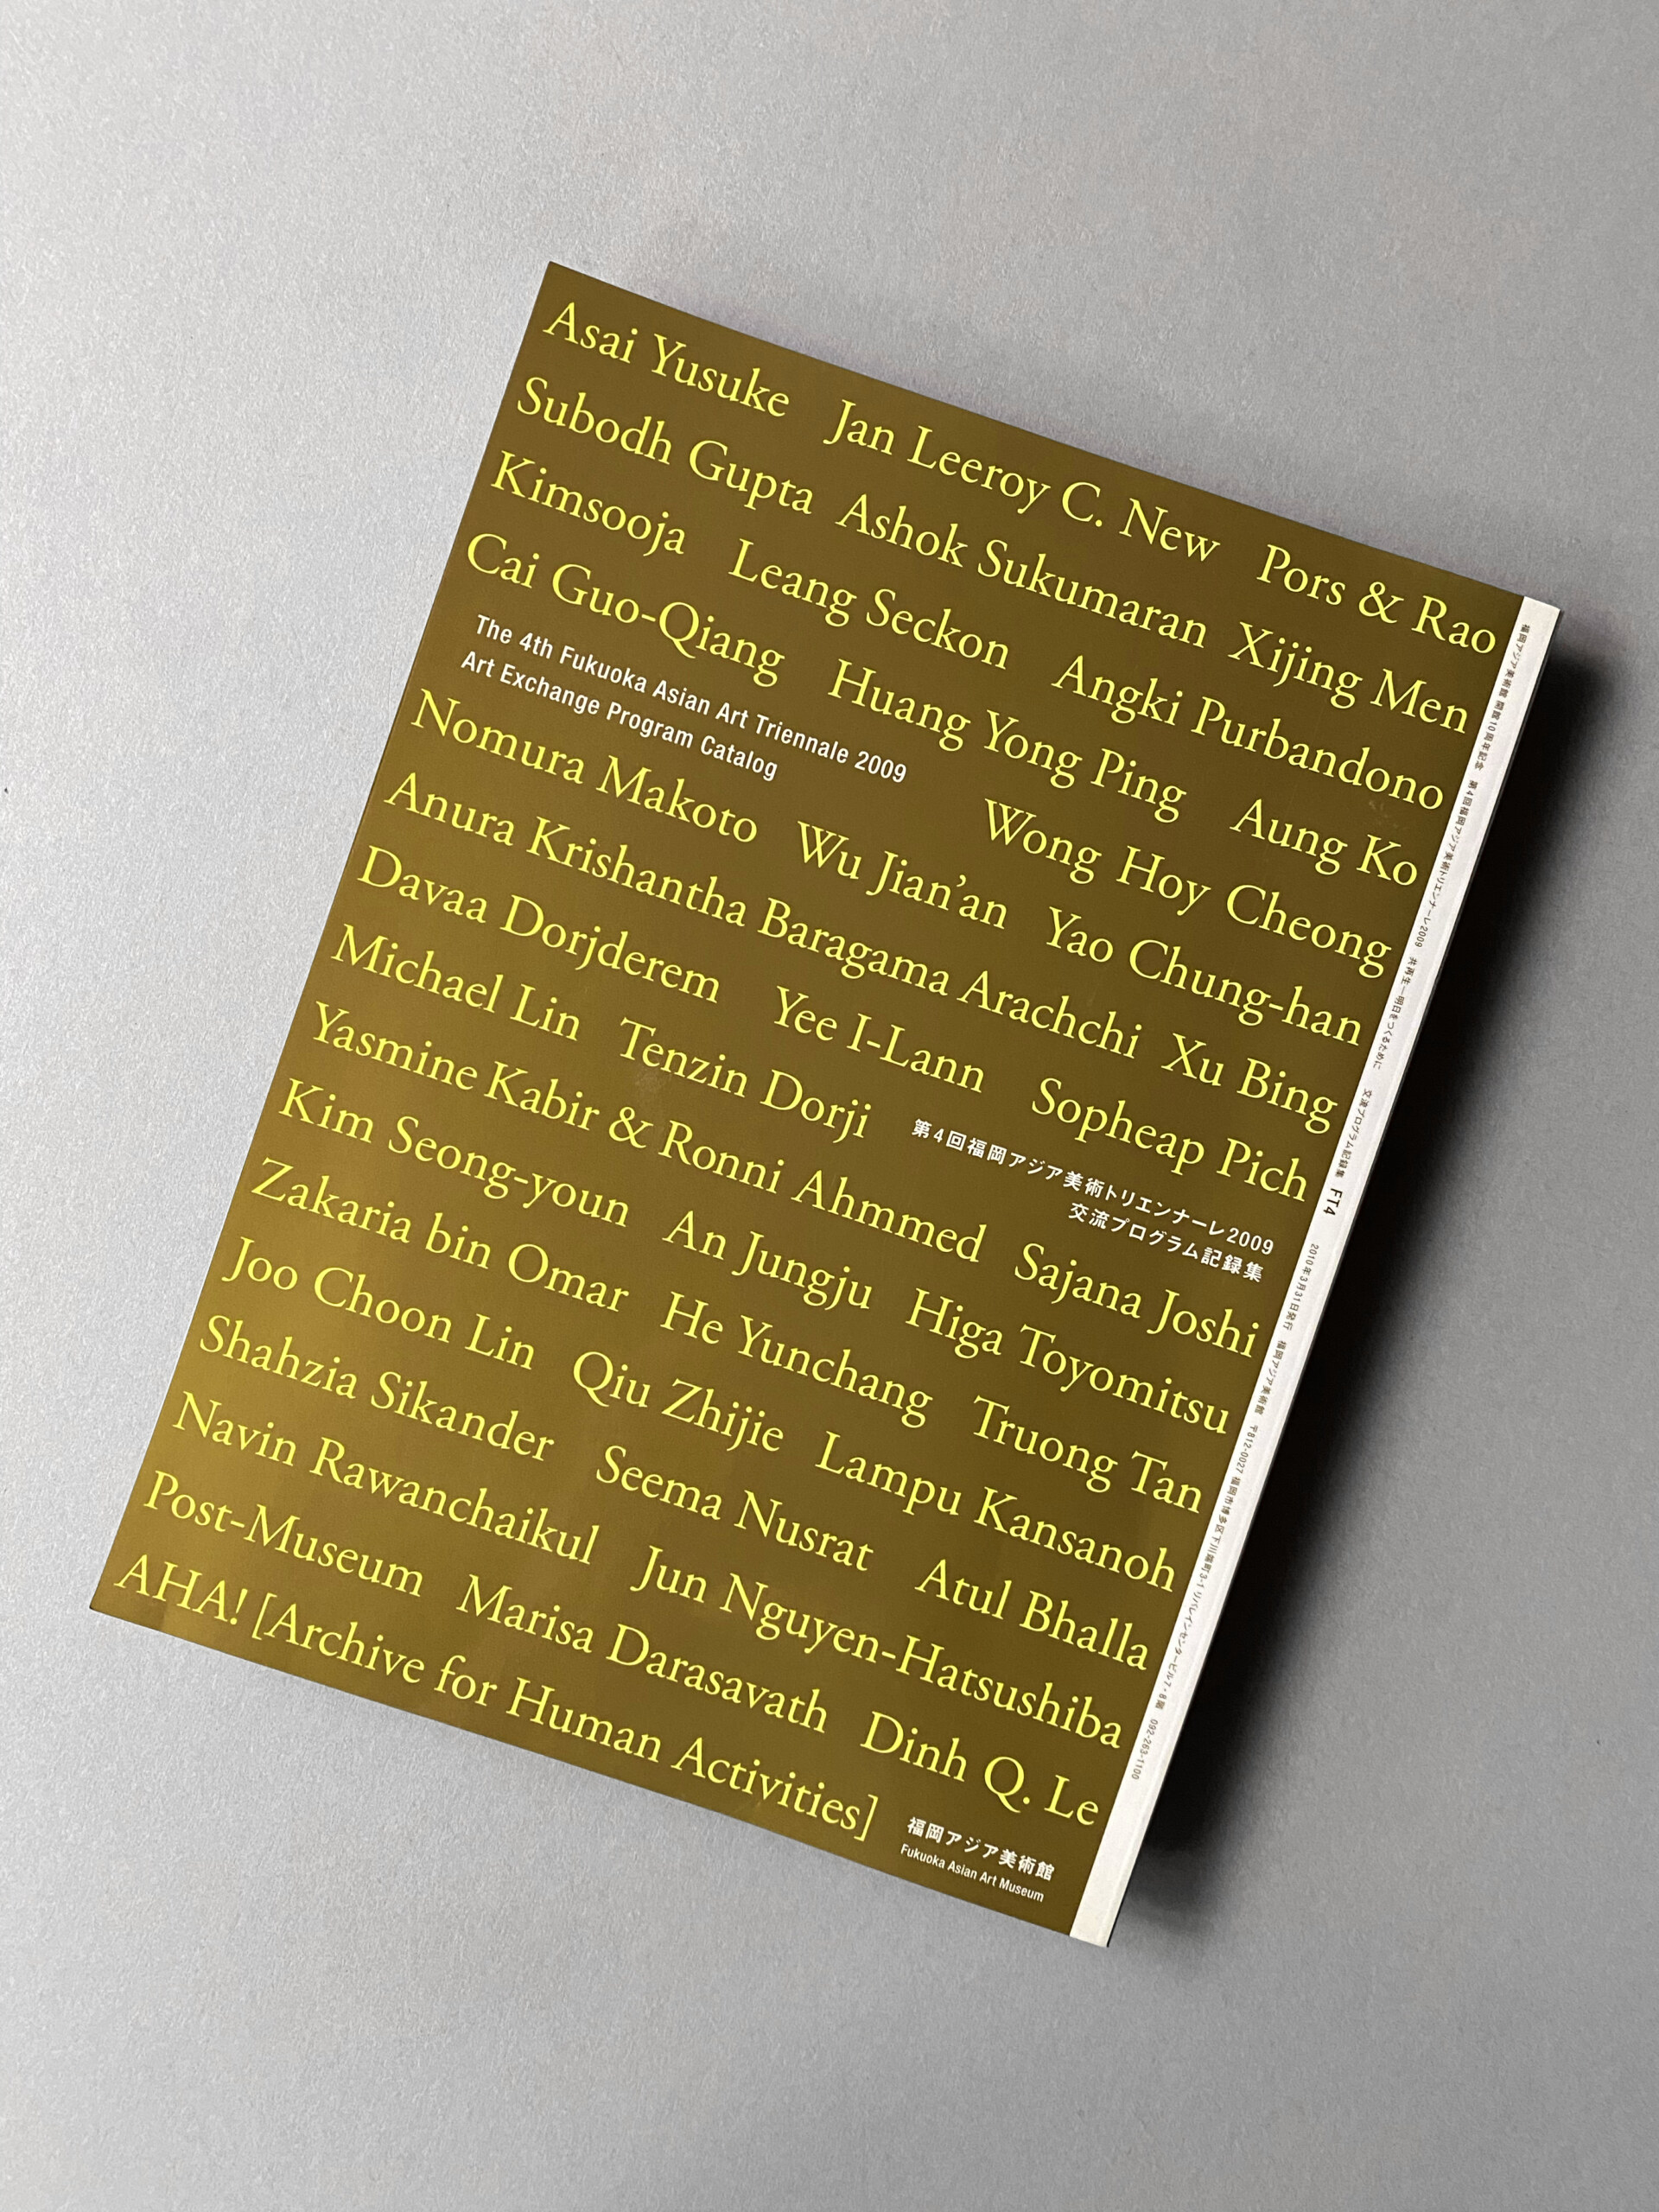 Asai Yusuke Jan Leeroy C. New Pors & Rao
Subodh Gupta Ashok Sukumaran Xijing Men
Kimsooja Leang Seckon Angki Purbandono
Cai Guo-Qiang Huang Yong Ping Aung Ko
The 4th Fukuoka Asian Art Triennale 2009
Art Exchange Program Catalog
Wong Hoy Cheong
Nomura Makoto Wu Jian’an Yao Chung-han
Anura Krishantha Baragama Arachchi Xu Bing
Davaa Dorjderem Yee I-Lann Sopheap Pich
Michael Lin Tenzin Dorji
第4回福岡アジア美術トリエンナーレ2009
交流プログラム記録集
Yasmine Kabir & Ronni Ahmmed Sajana Joshi
Kim Seong-youn An Jungju Higa Toyomitsu
Zakaria bin Omar He Yunchang Truong Tan
Joo Choon Lin Qiu Zhijie Lampu Kansanoh
Shahzia Sikander Seema Nusrat Atul Bhalla
Navin Rawanchaikul Jun Nguyen-Hatsushiba
Post-Museum Marisa Darasavath Dinh Q. Le
AHA! [Archive for Human Activities]
福岡アジア美術館
Fukuoka Asian Art Museum
福岡アジア美術館 開館10周年記念 第4回福岡アジア美術トリエンナーレ2009 共再生—明日をつくるために 交流プログラム記録集 FT4 2010年3月31日発行 福岡アジア美術館 〒812-0027 福岡市博多区下川端町3-1 リバレインセンタービル7・8階 092-263-1100